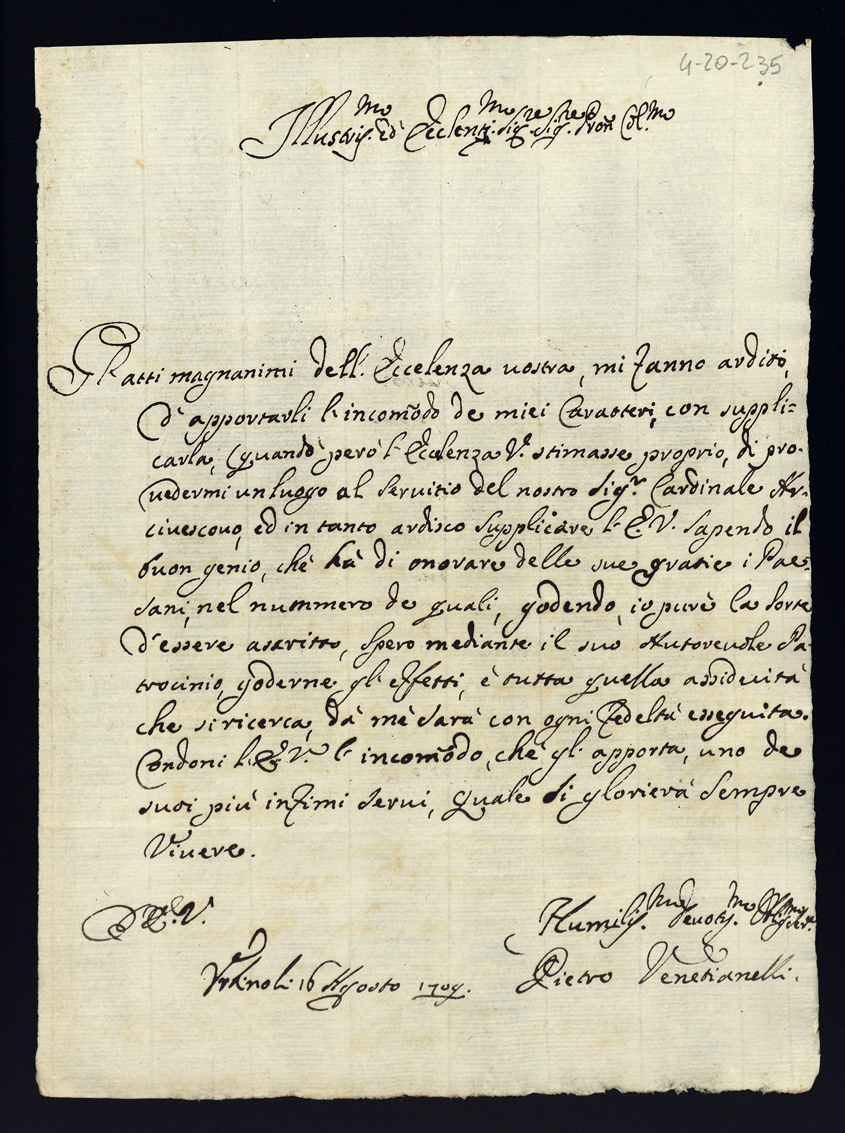 4-20-235
Illustris.mo ed Eccelentis.mo Sig.re Sig.re Pron Col.mo
Gl'atti magnanimi dell'Eccelenza vostra, mi fanno ardito,
d'apportarli l'incommodo de miei Caratteri, con suppli=
carla, (quando però l'Eccelenza V.a stimasse proprio, di pro-
vedermi un luogo al servitio del nostro Sig.r Cardinale Ar-
civescovo, ed in tanto ardisco supplicare l'E.V. sapendo il
buon genio, che hà di onorare delle sue gratie i Pae-
sani, nel nummero de quali, godendo, io purè la sorte
d'essere ascritto, spero mediante il suo Autorevole Pa-
trocinio, goderne gl'effetti, è tutta quella assiduità
che si ricerca, dà mè sarà con ogni Fedeltà esseguita.
Condoni l'E.V. l'incommodo, chè gl'apporta, uno de
suoi più infimi servi, quale si glorierà sempre
Vivere.
D.V.E.
Humilis.mo Devotis.mo Oblig.mo Ser.
16 Agosto 1709.
Pietro Venetianelli.